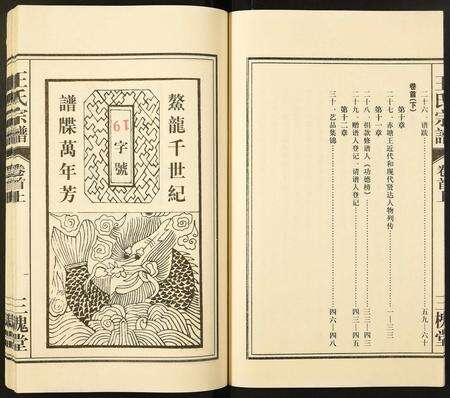 王氏宗譜
卷首上
三槐堂
二十六、谱跋……五九—六十
卷首(下)
第十章
二十七、赤塘王近代和现代贤达人物列传……一—三三
第十一章
二十八、捐款修谱人(功德榜)……三三—四三
二十九、赠谱人登记、请谱人登记……四三—四五
第十二章
三十、艺品集锦……四六—四八
鰲龍千世紀
19字號
譜牒萬年芳
王氏宗譜
卷首上
三槐堂